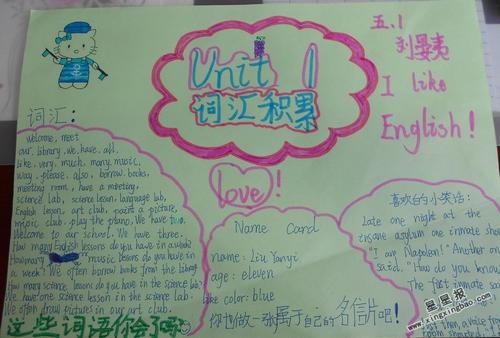 Unit 1
词汇积累
五.1
I like
English!
词汇:
welcome, meet
our, library, we, have, all,
like, very, much, many, music,
way, please, also, borrow, books,
meeting room, have a meeting,
science lab, science lesson, language lab,
English lesson, art club, paint a picture,
music club, play the piano, We have two.
Welcome to our school. We have three.
How many English lessons do you have in a week?
How many music lessons do you have in
a week? We often borrow books from the library.
How many science lessons do you have in the science lab?
We have one science lesson in the science lab.
We often draw pictures in our art club.
这些词语你会了吗?
love!
Name Card
name: Liu Yanyi
age: eleven
like color: blue
你也做一张属于自己的名信片吧!
喜欢的小笑话:
Late one night at the
insane asylum one inmate shou
"I am Napoleon!" Another on
said, "How do you know
The first inmate sa
then, a voice fro
room shouted,
星星报
www.xingxingbao.com